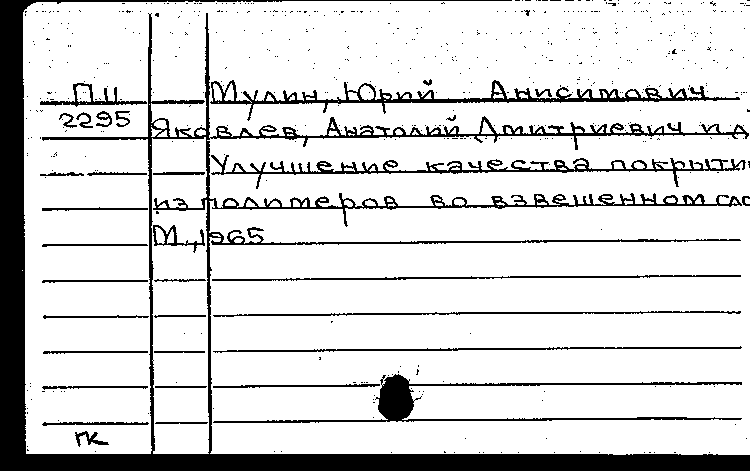 П11 Мулин, Юрий Анисимович
2295 Яковлев, Анатолий Дмитриевич и д
Улучшение качества покрыти
из полимеров во взвешенном сло
М., 1965
гк